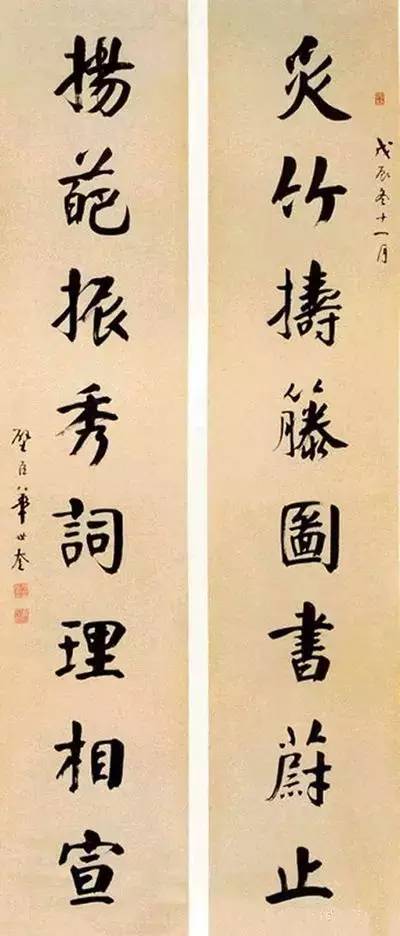 戊辰冬十一月
災竹擣籐圖書蔚止
揚葩振秀詞理相宣
璧臣華世奎